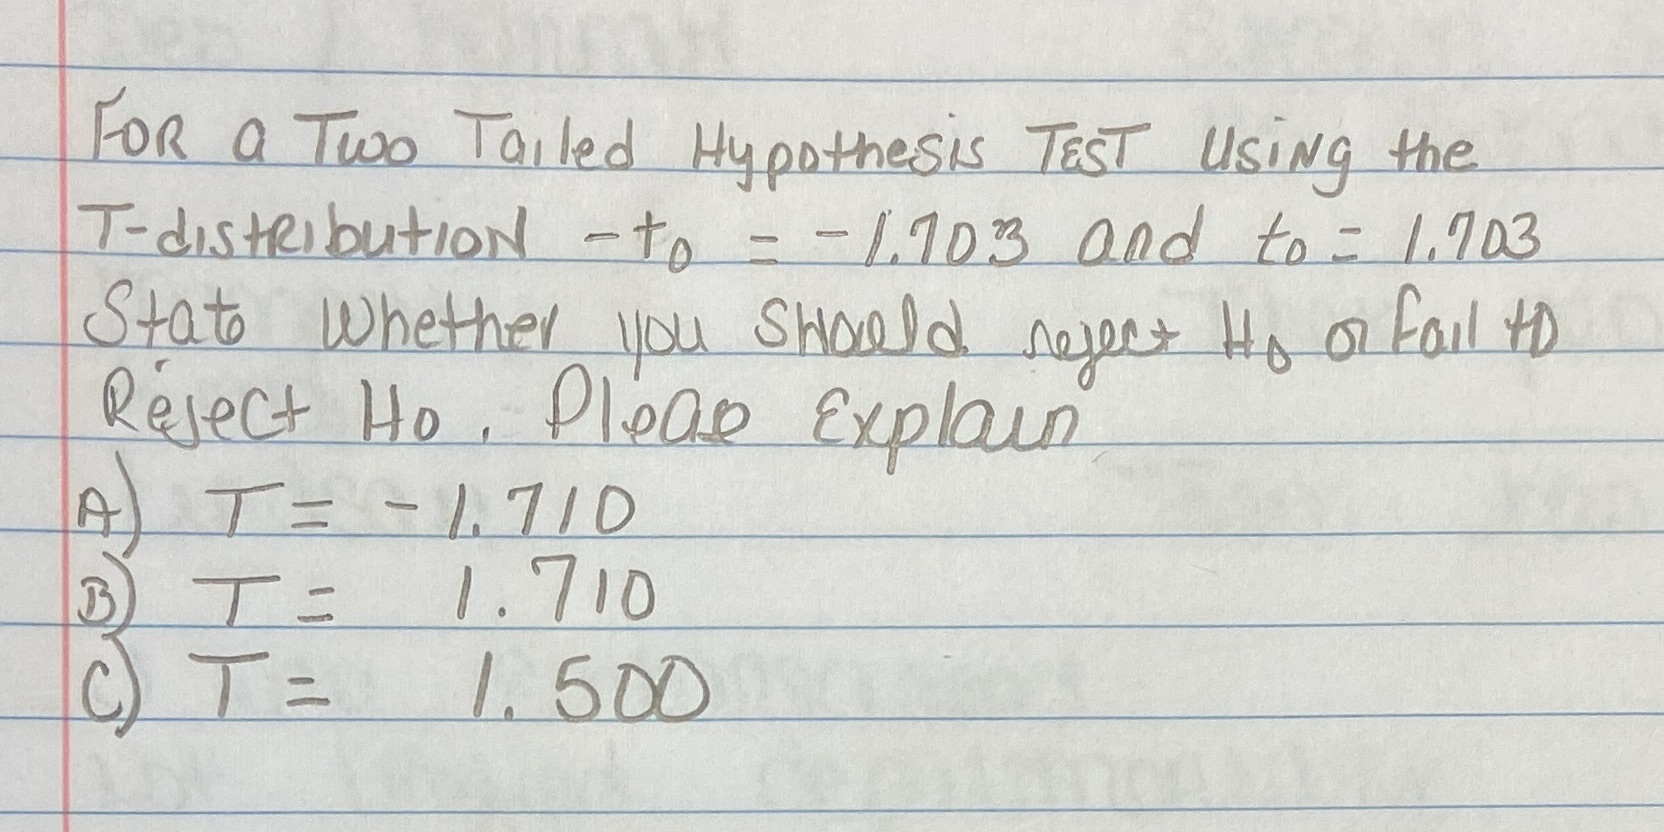 FOR a Two Tailed Hypothesis TEST Using the
T-distribution -to = -1.703 and to = 1.703
State Whether you Should reject Ho or fail to
Reject Ho. Please Explain
A) T = -1.710
B) T = 1.710
C) T = 1.500